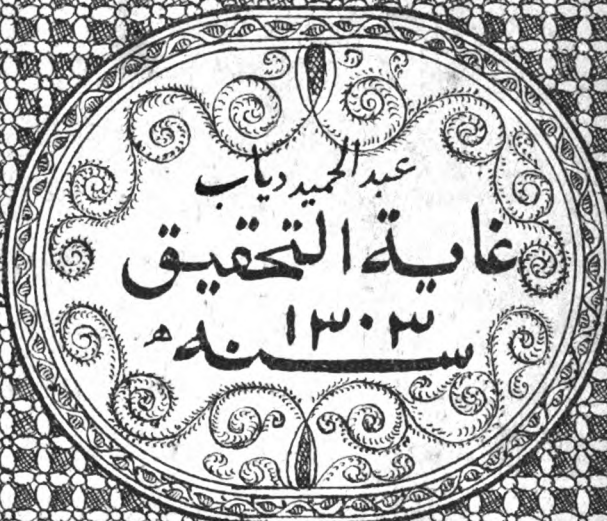 عبد الحميد دياب
غاية التحقيق
١٣٠٣
سنه ه